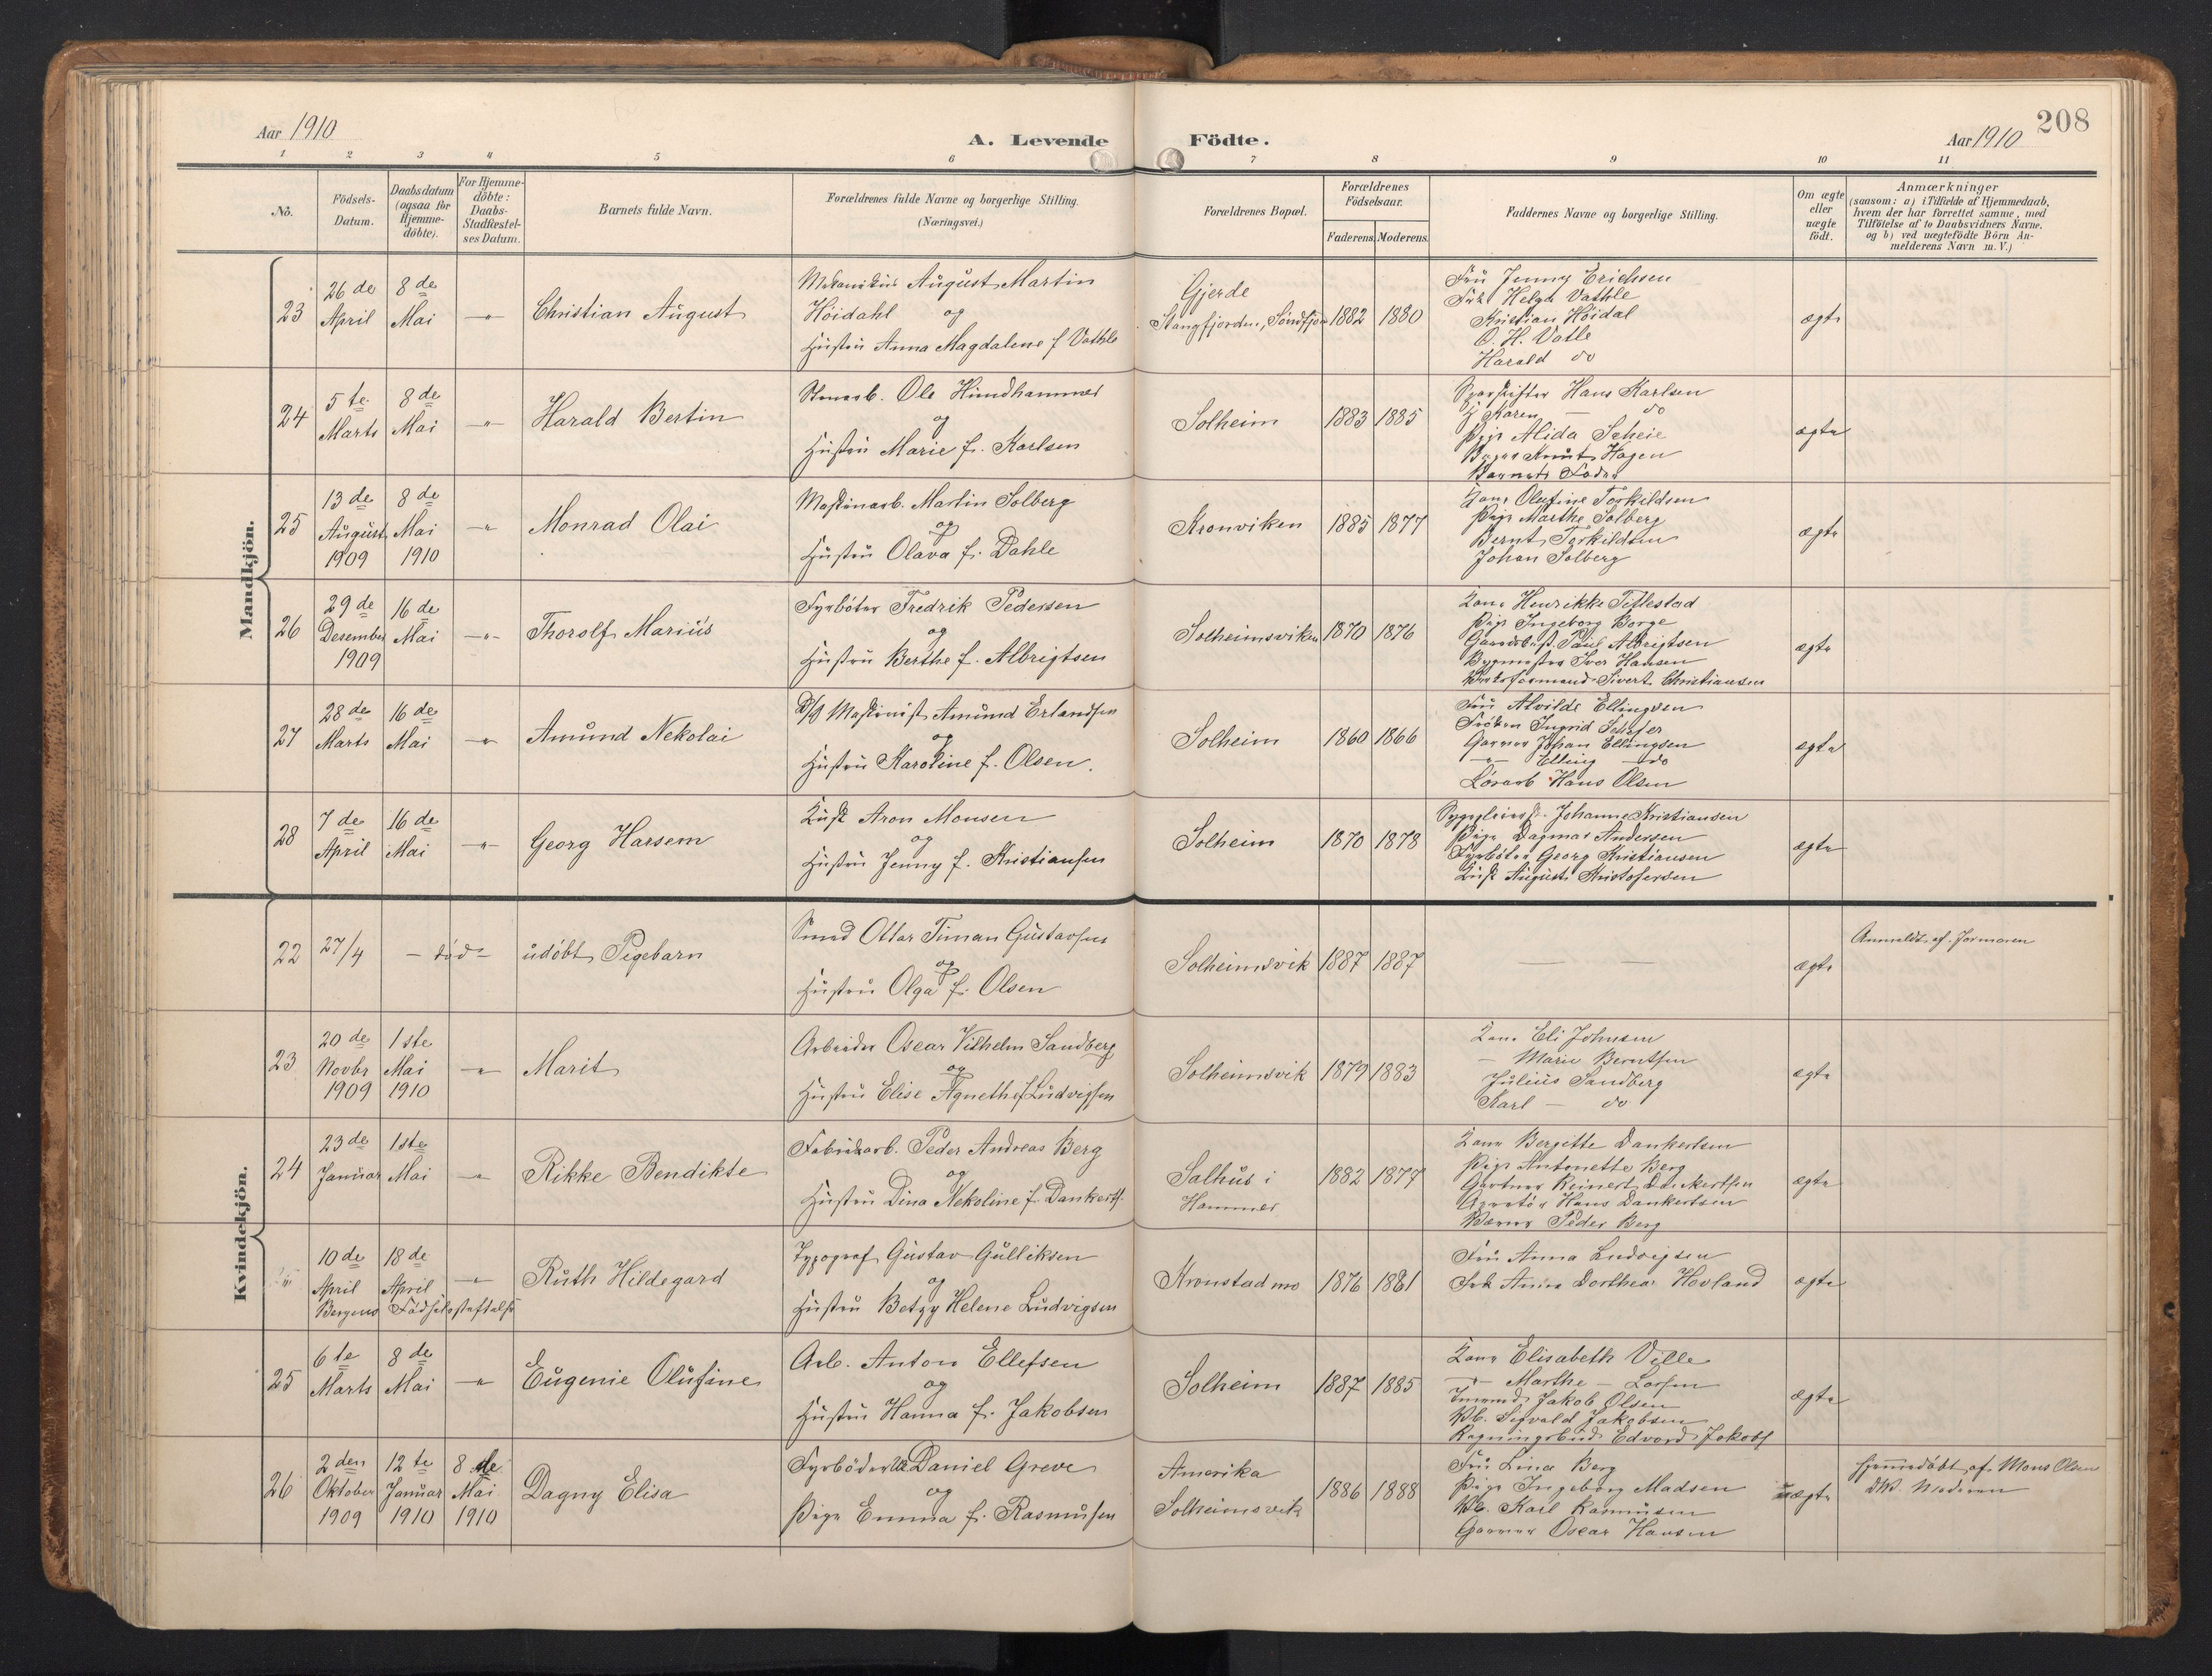 208
Aar 1910
A. Levende Födte.
Aar 1910
1 2 3 4 5 6 7 8 9 10 11
No.
Födsels-
Datum.
Daabsdatum
(ogsaa for
Hjemme-
döbte).
For Hjemme-
döbte:
Daabs-
Stadfæstel-
ses Datum.
Barnets fulde Navn.
Forældrenes fulde Navne og borgerlige Stilling.
(Næringsvei.)
Forældrenes Bopæl.
Forældrenes
Födselsaar.
Faderens. Moderens.
Faddernes Navne og borgerlige Stilling.
Om ægte
eller
uægte
födt.
Anmærkninger
(saasom: a) i Tilfælde af Hjemmedaab,
hvem der har forrettet samme, med
Tilföielse af to Daabsvidners Navne.
og b) ved uægtefödte Börn An-
melderens Navn m. V.)
Mandkjön.
23
26de
April
8de
Mai
-"-
Christian August
Mekanikus August Martin
Höidahl og
Hustru Anna Magdalene f Vathle
Gjerde
Stangfjorden, Söndfjor
1882 1880
Fru Jenny Erichsen
Frk Helga Vathle
Kristian Höidal
O. H. Vatle
Harald do
ægte
24
5te
Marts
8de
Mai
-"-
Harald Bertin
Stenarb. Ole Hundhammer
og
Hustru Marie f. Karlsen
Solheim
1883 1885
Sporskifter Hans Karlsen
Karen — do
Pige Alida Scheie
Knut Hagen
Barnets Fader
ægte
25
13de
August
1909
8de
Mai
1910
-"-
Monrad Olai
Maskinarb. Martin Solberg
og
Hustru Olava f. Dahle
Kronviken
1885 1877
Kone Olufine Torkildsen
Pige Marthe Solberg
Bernt Torkildsen
Johan Solberg
ægte
26
29de
Desember
1909
16de
Mai
-"-
Thorolf Marius
Fyrböter Fredrik Pedersen
og
Hustru Berthe f. Albrigtsen
Solheimsviken
1870 1876
Kone Henrikke Titlestad
Pige Ingeborg Borge
Gaardbr. Paul Albrigtsen
Bygmester Iver Hansen
Sivert Christiansen
ægte
27
28de
Marts
16de
Mai
-"-
Amund Nekolai
D/S Maskinist Amund Erlandsen
og
Hustru Karoline f. Olsen.
Solheim
1860 1866
Fru Alvilde Ellingsen
Fröken Ingrid Schöfer
Garver Johan Ellingsen
-"- Elling do
Lösarb Hans Olsen
ægte
28
7de
April
16de
Mai
-"-
Georg Harsem
Kusk Aron Monsen
og
Hustru Jenny f. Kristiansen
Solheim
1870 1878
Johanne Kristiansen
Pige Dagmar Andersen
Fyrböter Georg Kristiansen
Kusk August Kristofersen
ægte
Kvindekjön.
22
27/4
— död —
udöbt Pigebarn
Smed Ottar Timan Gustavsen
og
Hustru Olga f. Olsen
Solheimsvik
1887 1887
— —
ægte
Anmeldt af Jormoren
23
20de
Novbr
1909
1ste
Mai
1910
-"-
Marit
Arbeider Oscar Vilhelm Sandberg
og
Hustru Elise Agnethe f Ludvigsen
Solheimsvik
1879 1883
Kone Eli Johnsen
— Marie Berntsen
Julius Sandberg
Karl — do
ægte
24
23de
Januar
1ste
Mai
-"-
Rikke Bendikte
Fabrikarb. Peder Andreas Berg
og
Hustru Dina Nekoline f. Dankerts.
Salhus i
Hammer
1882 1877
Kone Bergette Dankertsen
Pige Antonette Berg
Gartner Reinert Dankertsen
Hans Dankertsen
Peder Berg
ægte
10de
April
18de
April
Bergens Födselsstiftelse
-"-
Ruth Hildegard
Typograf Gustav Gulliksen
og
Hustru Betzy Helene Ludvigsen
Kronstad mo
1876 1881
Fru Anna Ludvigsen
Frk Anna Dorthea Hovland
ægte
25
6te
Marts
8de
Mai
-"-
Eugenie Olufine
Arb. Anton Ellefsen
og
Hustru Hanna f. Jakobsen
Solheim
1887 1885
Kone Elisabeth Ville
-"- Marthe — Larsen
Jakob Olsen
Sigvald Jakobsen
Regningsbud Edvard Jakobs
ægte
26
2den
Oktober
1909
12te
Januar
1910
8de
Mai
1910
Dagny Elisa
Fyrböder Daniel Greve
og
Pige Emma f. Rasmussen
Amerika
Solheimsvik
1886 1888
Fru Lina Berg
Pige Ingeborg Madsen
Karl Rasmusen
Garver Oscar Hansen
uægte
Hjemmedöbt af Mons Olsen
Moderen